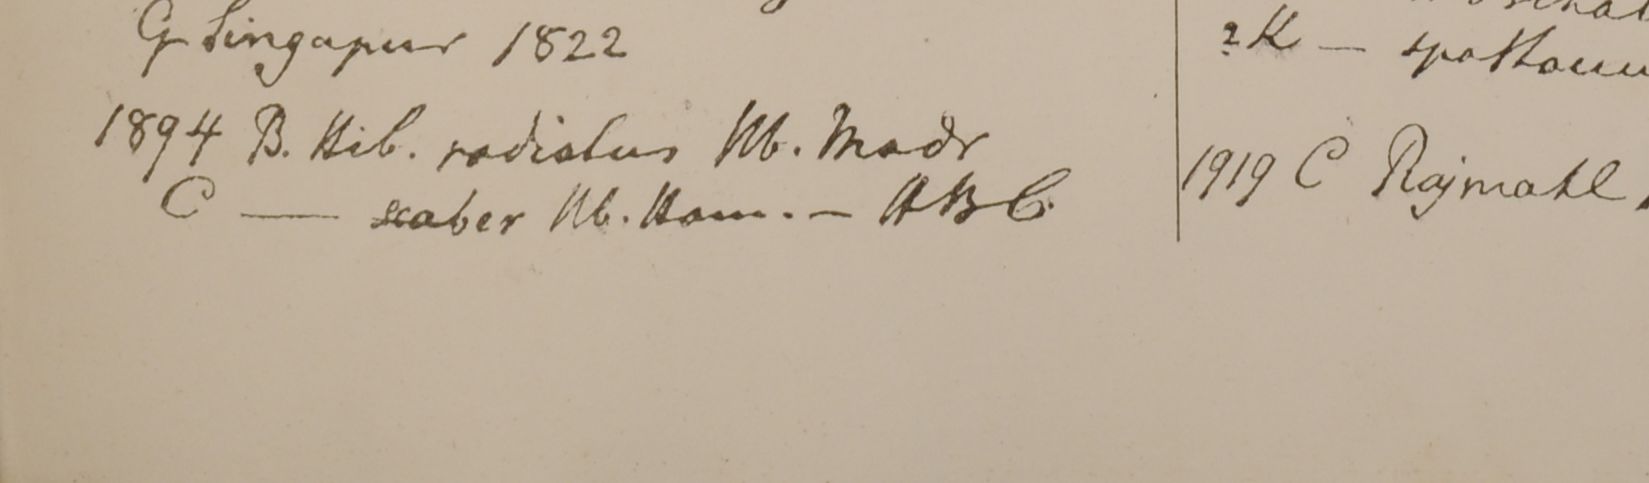 G Singapur 1822
1894 B. Hib. radiatus Hb. Madr
C — scaber Hb. Ham. — A B C.
2 K —
1919 C Rajmahl